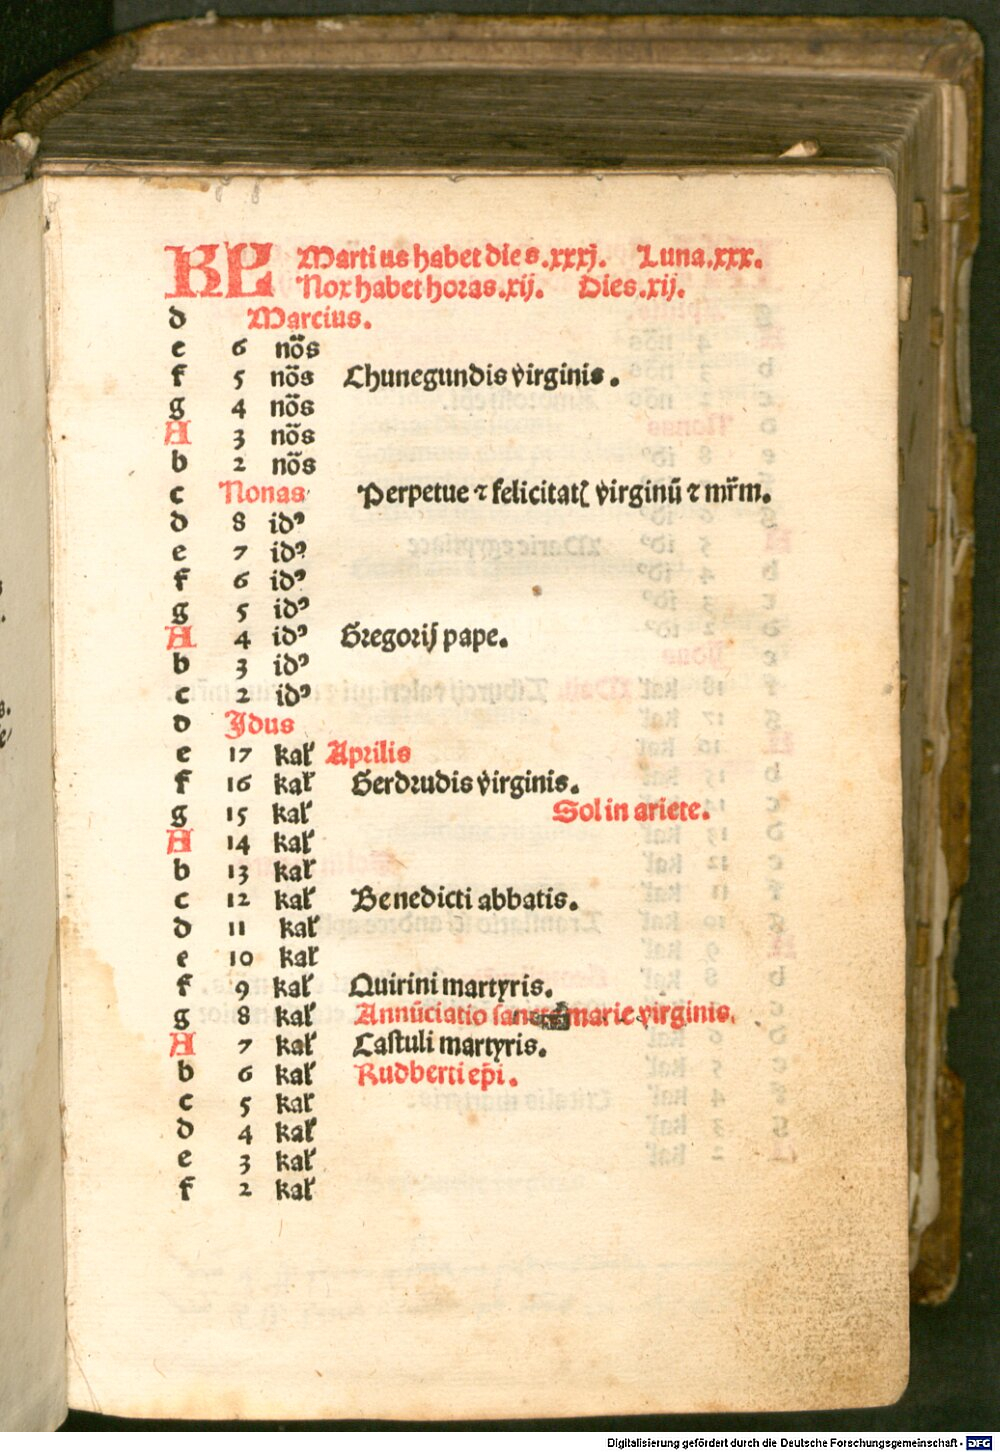 KL Martius habet dies.xxxj. Luna.xxx.
Nox habet horas.xij. Dies.xij.
d Marcius.
e 6 no̅s
f 5 no̅s Chunegundis virginis.
g 4 no̅s
A 3 no̅s
b 2 no̅s
c Nonas Perpetue ⁊ felicitatꝭ virginū ⁊ mr̄m.
d 8 idꝰ
e 7 idꝰ
f 6 idꝰ
g 5 idꝰ
A 4 idꝰ Gregorij pape.
b 3 idꝰ
c 2 idꝰ
d Jdus
e 17 kał Aprilis
f 16 kał Gerdrudis virginis.
g 15 kał Sol in ariete.
A 14 kał
b 13 kał
c 12 kał Benedicti abbatis.
d 11 kał
e 10 kał
f 9 kał Quirini martyris.
g 8 kał Annūciatio sancte marie virginis.
A 7 kał Castuli martyris.
b 6 kał Rudberti ep̄i.
c 5 kał
d 4 kał
e 3 kał
f 2 kał
Digitalisierung gefördert durch die Deutsche Forschungsgemeinschaft - DFG